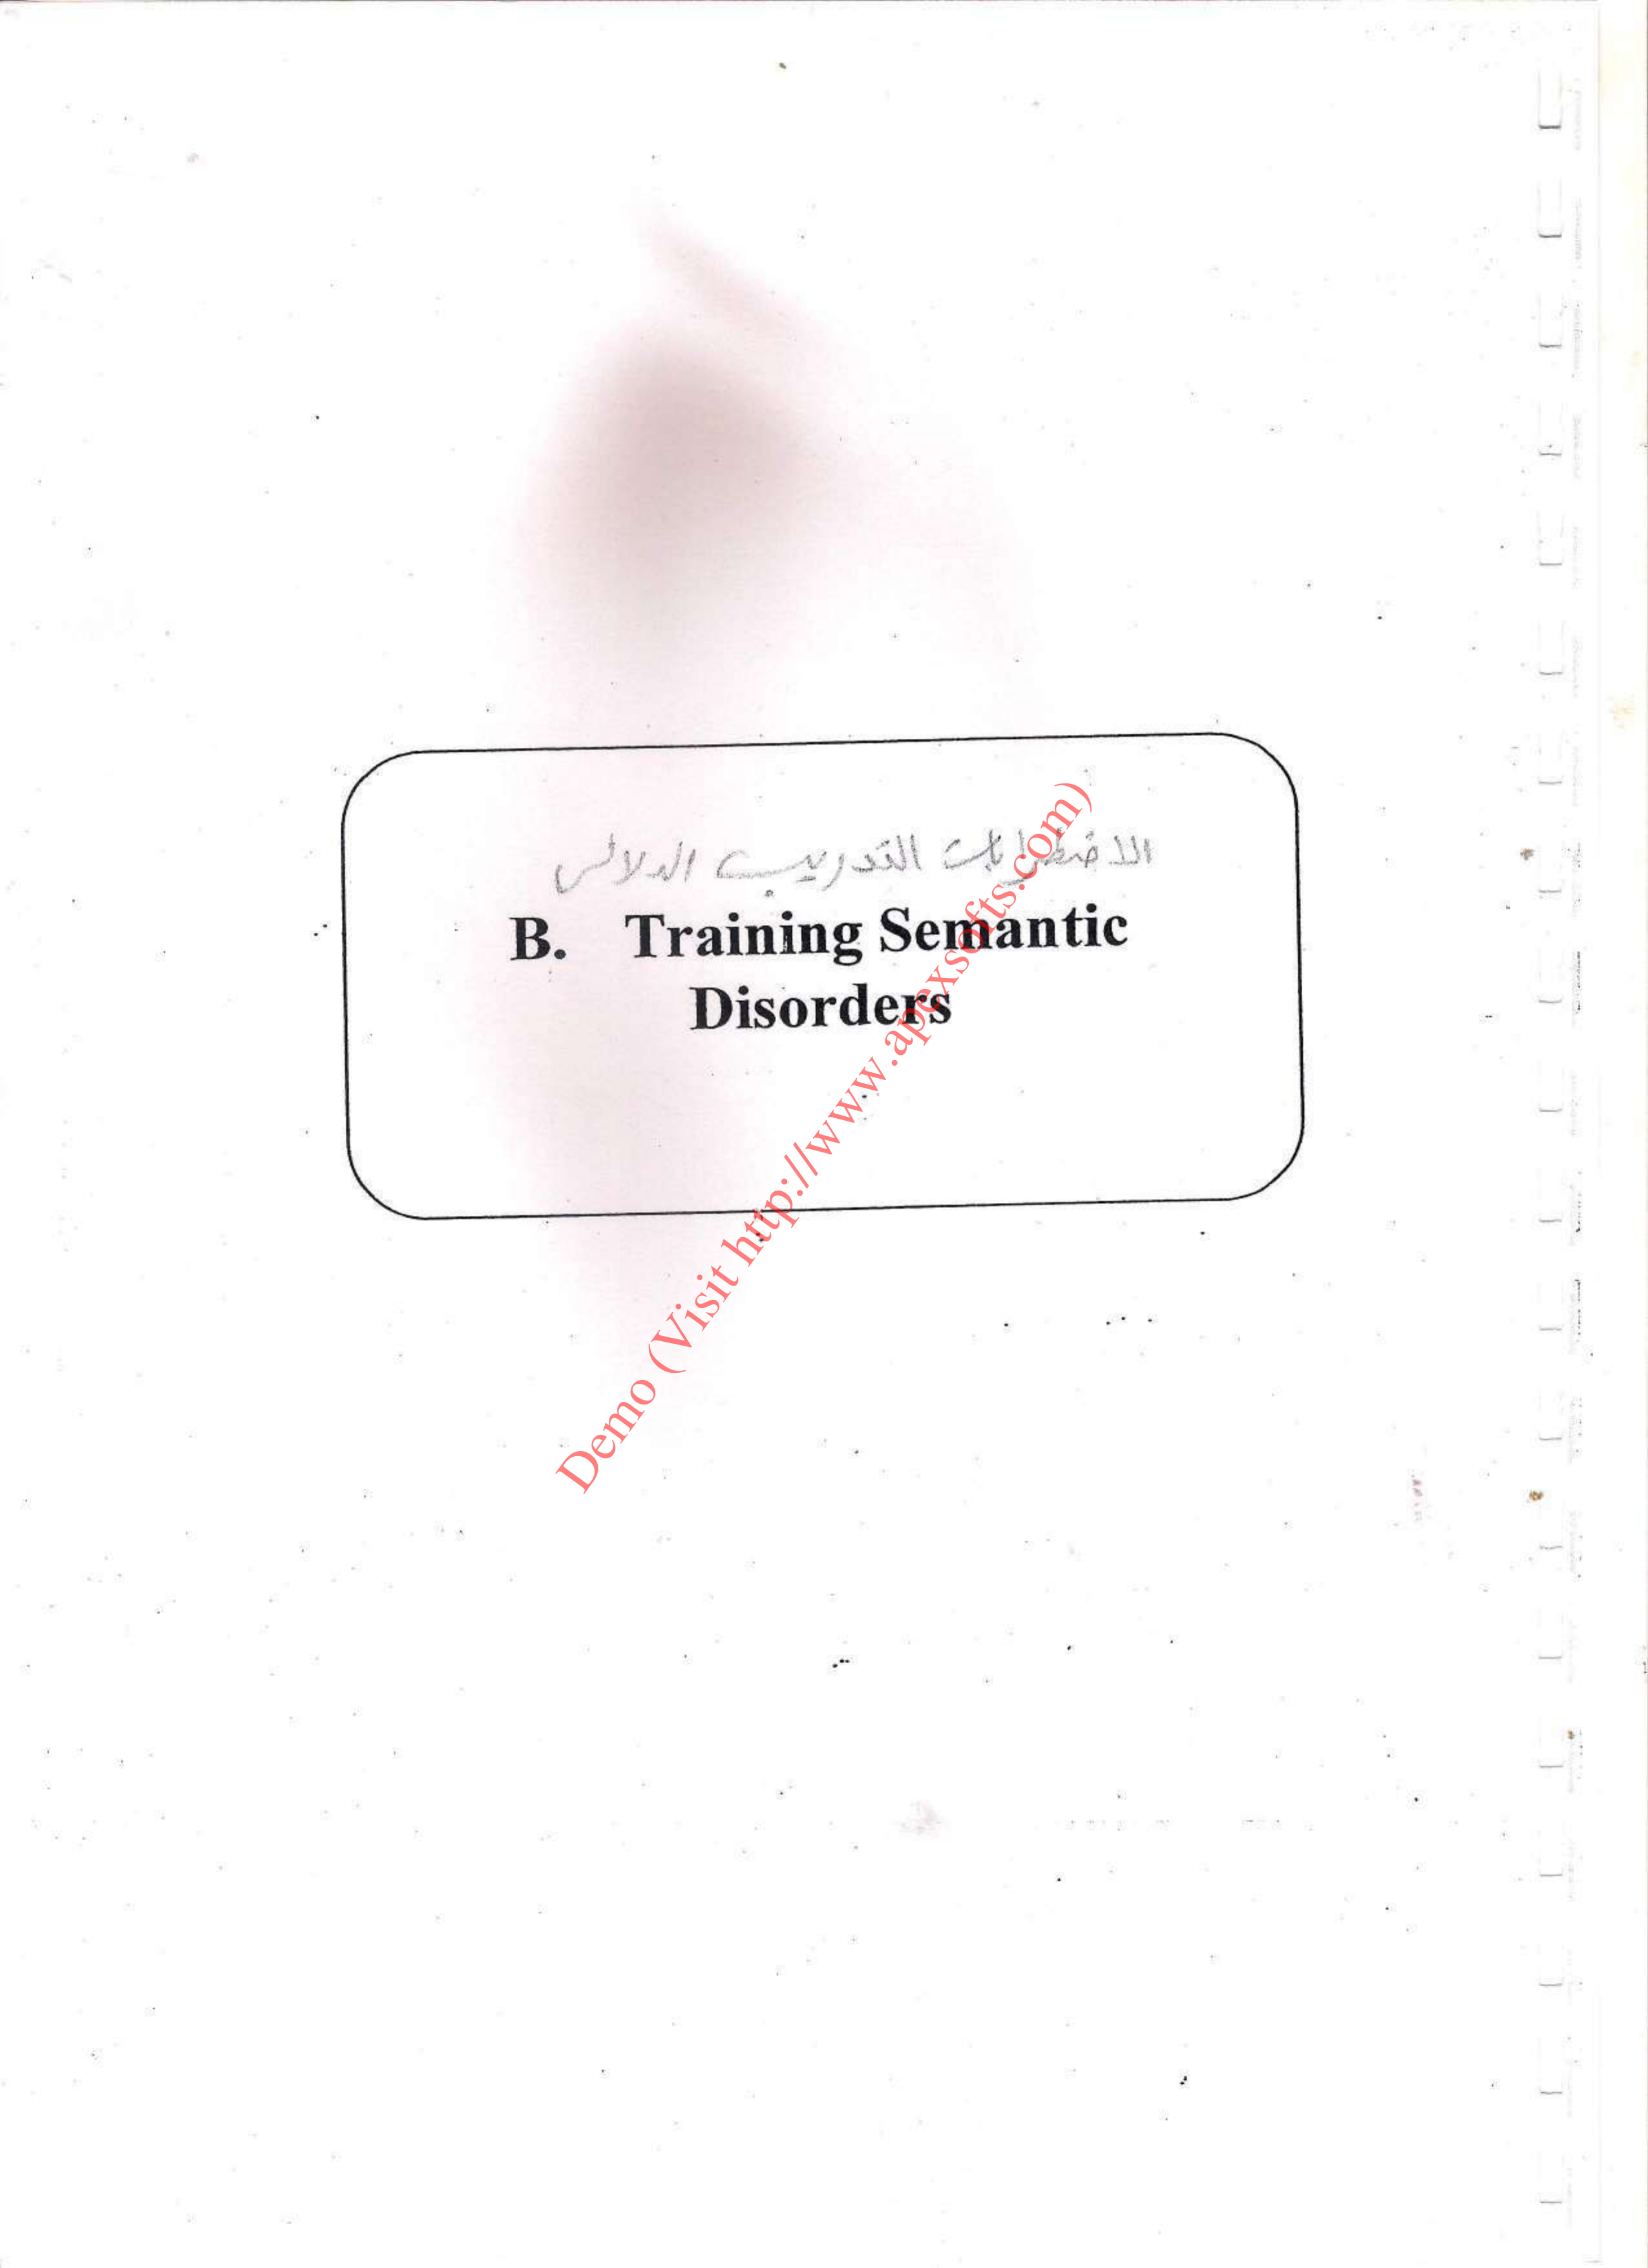 الاضطرابات التدريب الدلالي
B. Training Semantic
Disorders
Demo (Visit http://www.apexsofts.com)